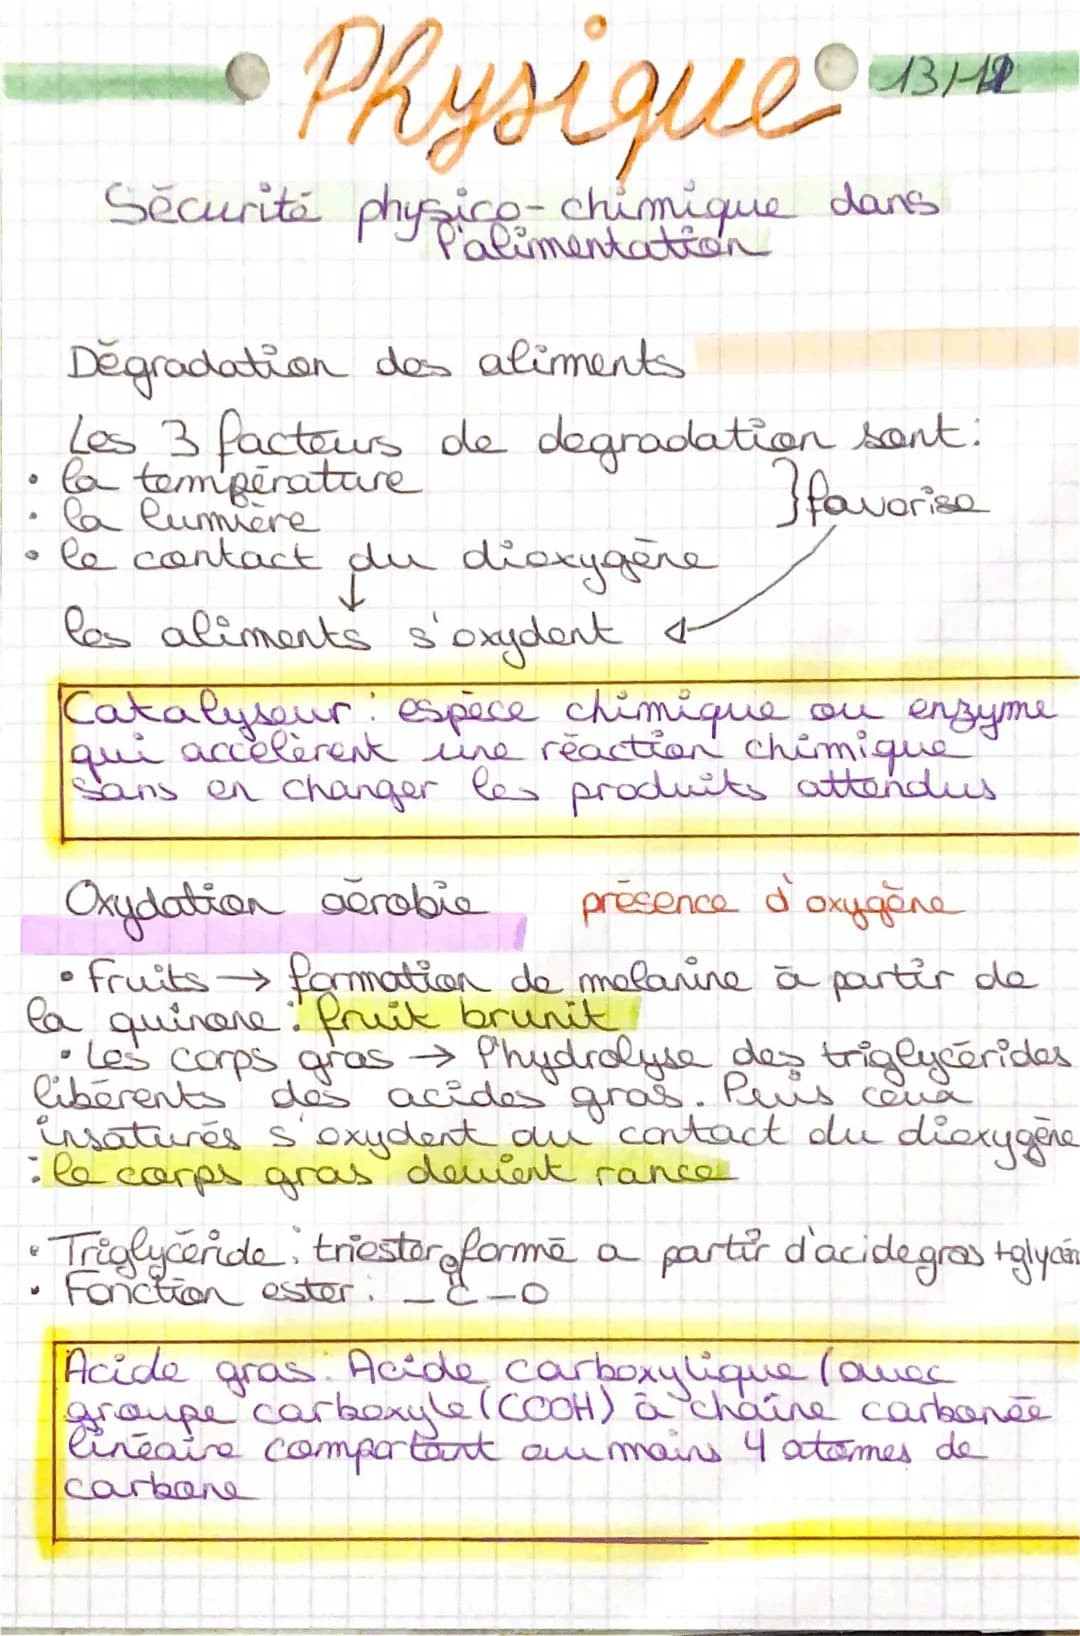 Physique 13/12
Sécurité physico-chimique dans
l'alimentation
Dégradation des aliments
Les 3 facteurs de degradation sont:
• la température
• la lumière
} favorise
• le contact du dioxygène
↓
les aliments s'oxydent
Catalyseur : espèce chimique ou enzyme
qui accélèrent une réaction chimique
sans en changer les produits attendus
Oxydation aérobie présence d'oxygène
• Fruits → formation de melanine à partir de
la quinone : fruit brunit
• Les corps gras → l'hydrolyse des triglycérides
libérents des acides gras. Puis ceux
insaturés s'oxydent au contact du dioxygène
: le corps gras devient rance
• Triglycéride : triester formé a partir d'acide gras +
• Fonction ester : - C - O
O
Acide gras : Acide carboxylique (avec
groupe carboxyle (COOH) à chaîne carbonée
linéaire comportant au moins 4 atomes de
carbone